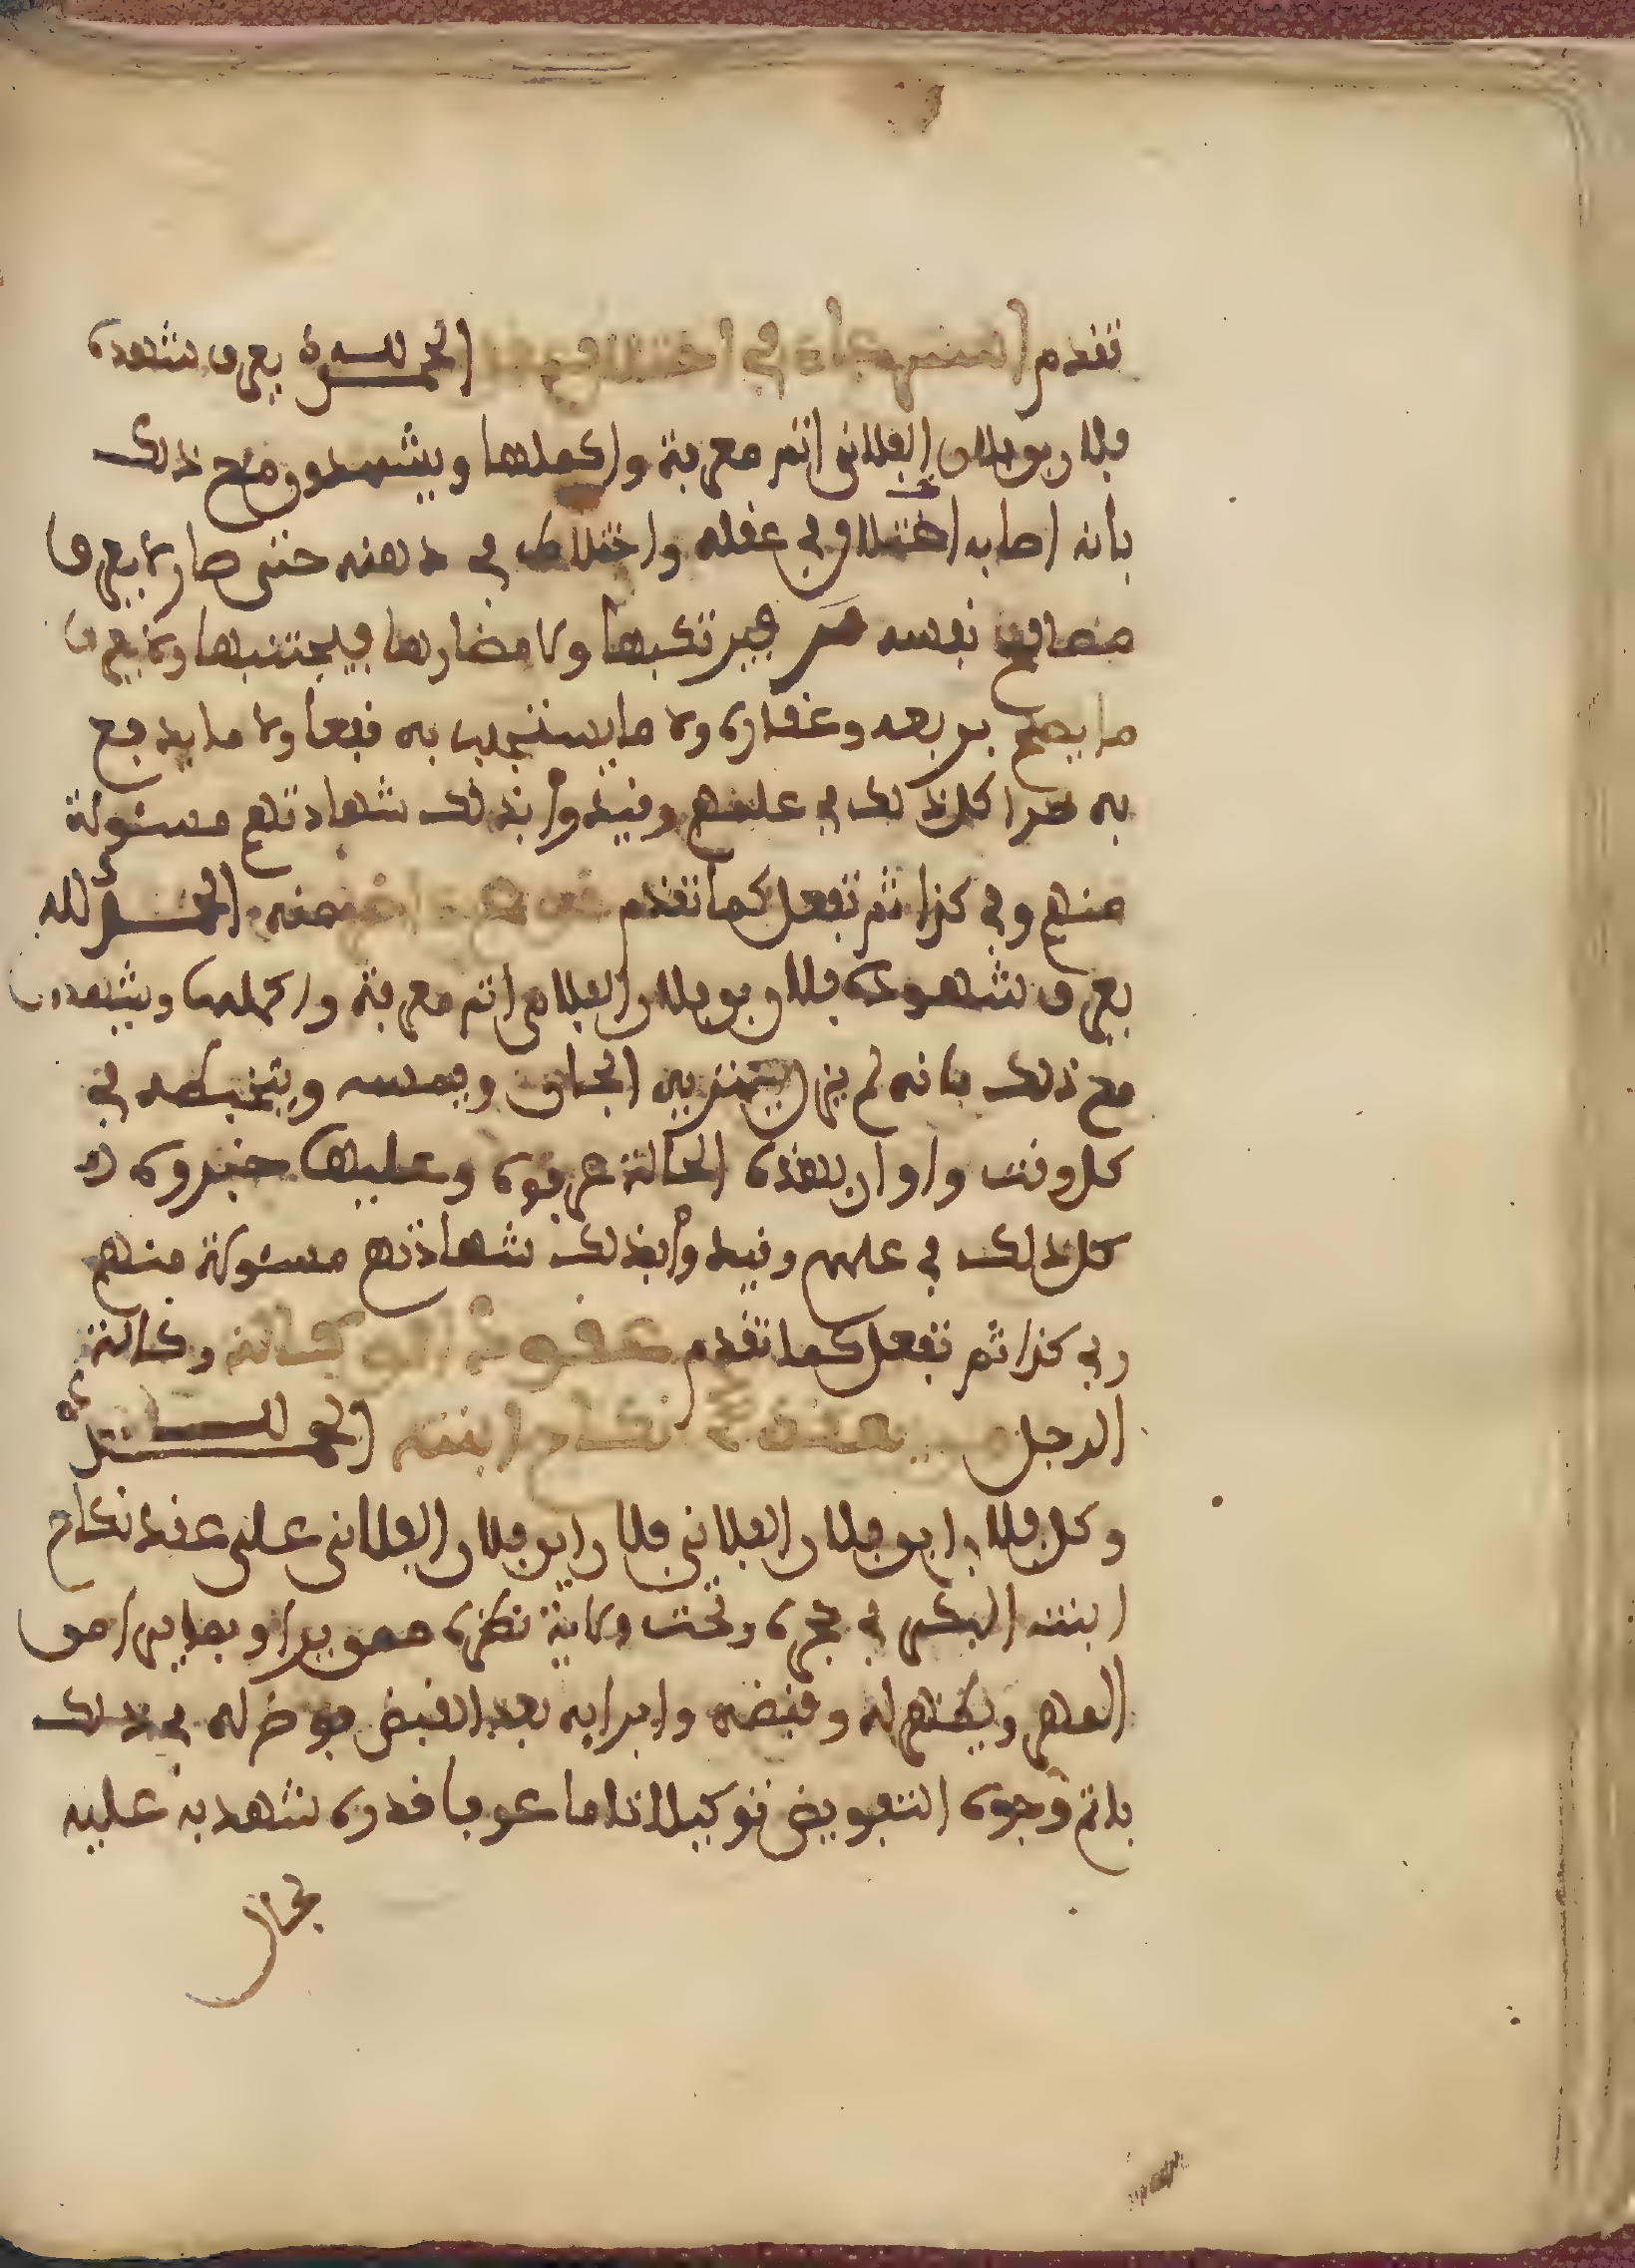 تقدم استرعاء في اختلاف عقل الحمد لله يعرف شهوده
فلان بن فلان الفلاني اتم معرفة واكملها ويشهدون مع ذلك
بانه اصابه اختلال في عقله واختلاط في ذهنه حتى صار لا يعرف
مصالح نفسه فيرتكبها ولا مضارها فيجتنبها ولا يعرف
ما يصلح بربعه وعقاره ولا ما يستجلب به نفعا ولا ما يدفع
به ضررا كل ذلك في علمهم وقيدوا بذلك شهادتهم مسئولة
منهم وفي كذا ثم تفعل كما تقدم الحمد لله
يعرف شهوده فلان بن فلان الفلاني اتم معرفة واكملها ويشهدون
مع ذلك بانه لم يزل يعتريه الجان ويمسه ويتخبطه في
كل وقت واوان بهذه الحالة عرفوه وعليها خبروه
كل ذلك في علمهم وقيدوا بذلك شهادتهم مسئولة منهم
وفي كذا ثم تفعل كما تقدم عقود الوكالة وكالة
الرجل من يعقد نكاح ابنته الحمد لله
وكل فلان بن فلان الفلاني فلان بن فلان الفلاني على عقد نكاح
ابنته البكر في حجره وتحت ولاية نظره ممن يراه بما يراه من
المهر ويظهر له وقبضه وابرايه بعد القبض فوض له في ذلك
باتم وجوه التفويض توكيلا تاما عرفا قدره شهد به عليه
بحال